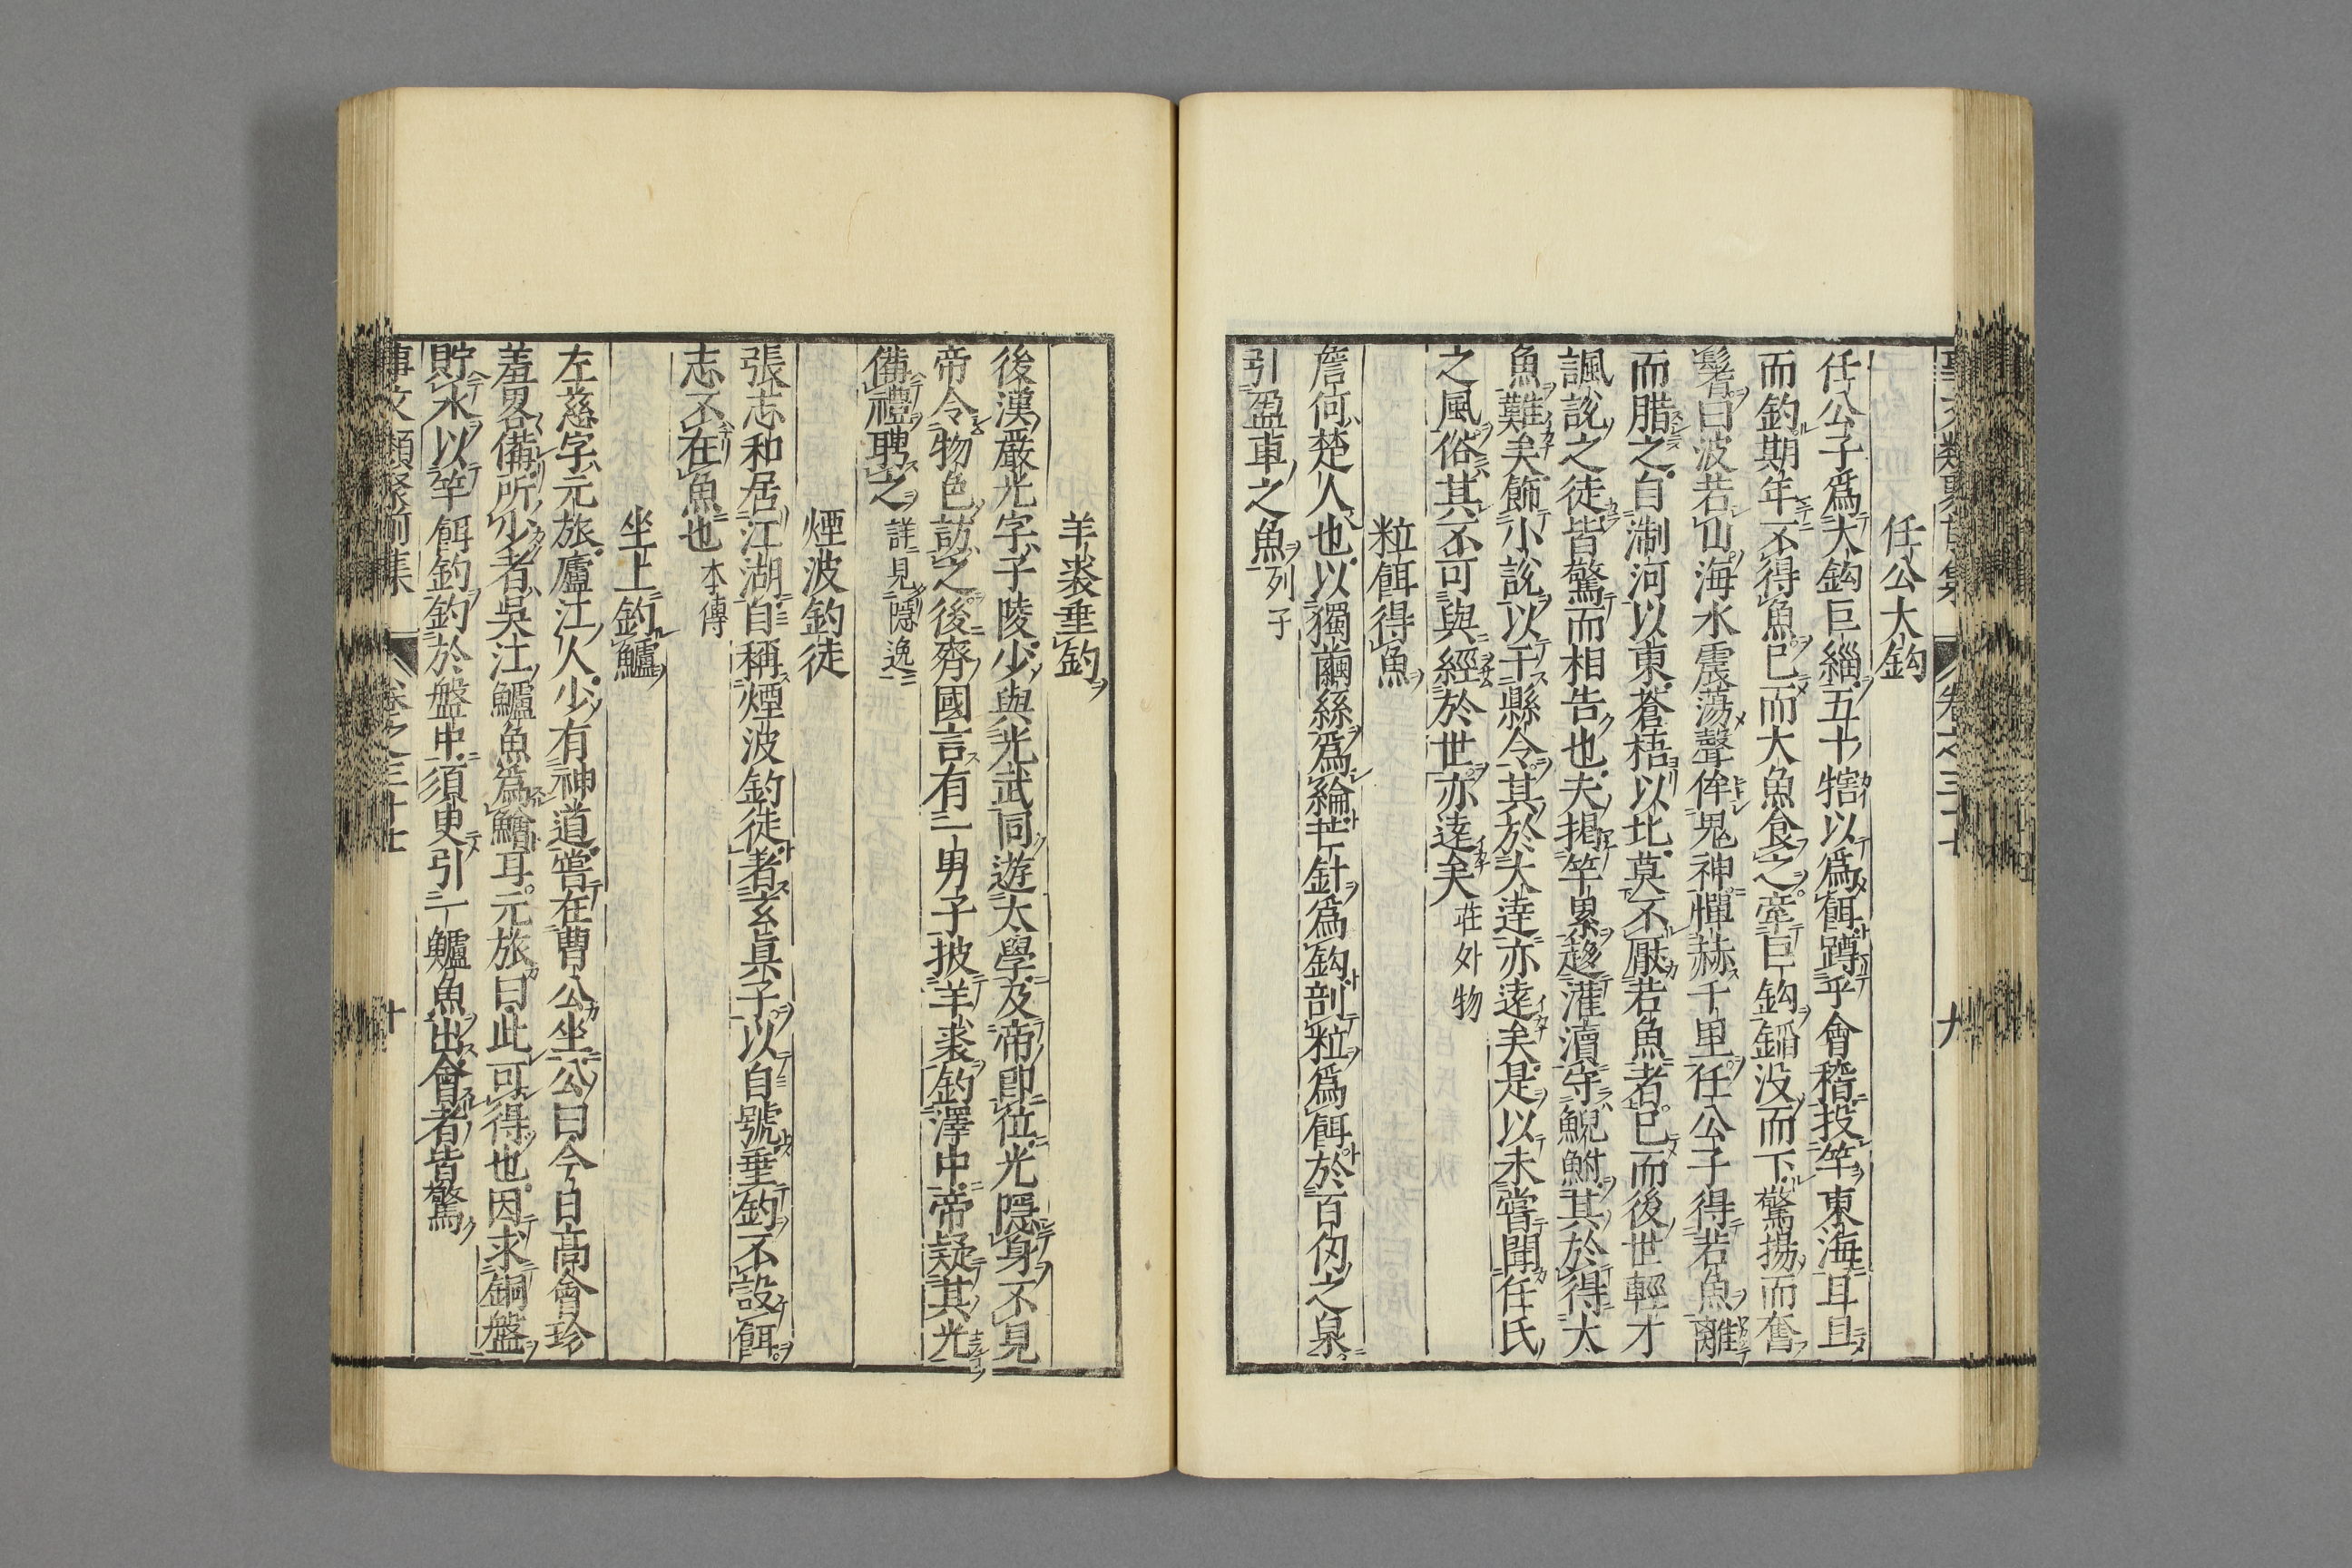 任公大鈎
任公子爲大鈎巨緇五十犗以爲餌蹲乎會稽投竿東海耳且
而釣期年不得魚已而大魚食之牽巨鈎錎没而下驚揚而奮
鬐白波若山海水震蕩聲侔鬼神憚赫千里任公子得若魚離
而腊之自淛河以東蒼梧以北莫不厭若魚者已而後世輕才
諷說之徒皆驚而相告也夫揭竿累趍灌瀆守鯢鮒其於得大
魚難矣飾小說以干縣令其於大逹亦遠矣是以未嘗聞任氏
之風俗其不可與經於世亦遠矣莊外物
粒餌得魚
詹何楚人也以獨繭絲爲綸芒針爲鈎剖粒爲餌於百仭之泉
引盈車之魚列子
羊裘垂釣
後漢嚴光字子陵少與光武同遊太學及帝即位光隱身不見
帝令物色訪之後齊國言有一男子披羊裘釣澤中帝疑其光
備禮聘之詳見隱逸
煙波釣徒
張志和居江湖自稱煙波釣徒者玄眞子以自號垂釣不設餌
志不在魚也本傳
坐上釣鱸
左慈字元旅廬江人少有神道嘗在曹公坐公曰今日高會珍
羞畧備所少者吳江鱸魚爲鱠耳元旅曰此可得也因求銅盤
貯水以竿餌釣釣於盤中須臾引一鱸魚出會者皆驚